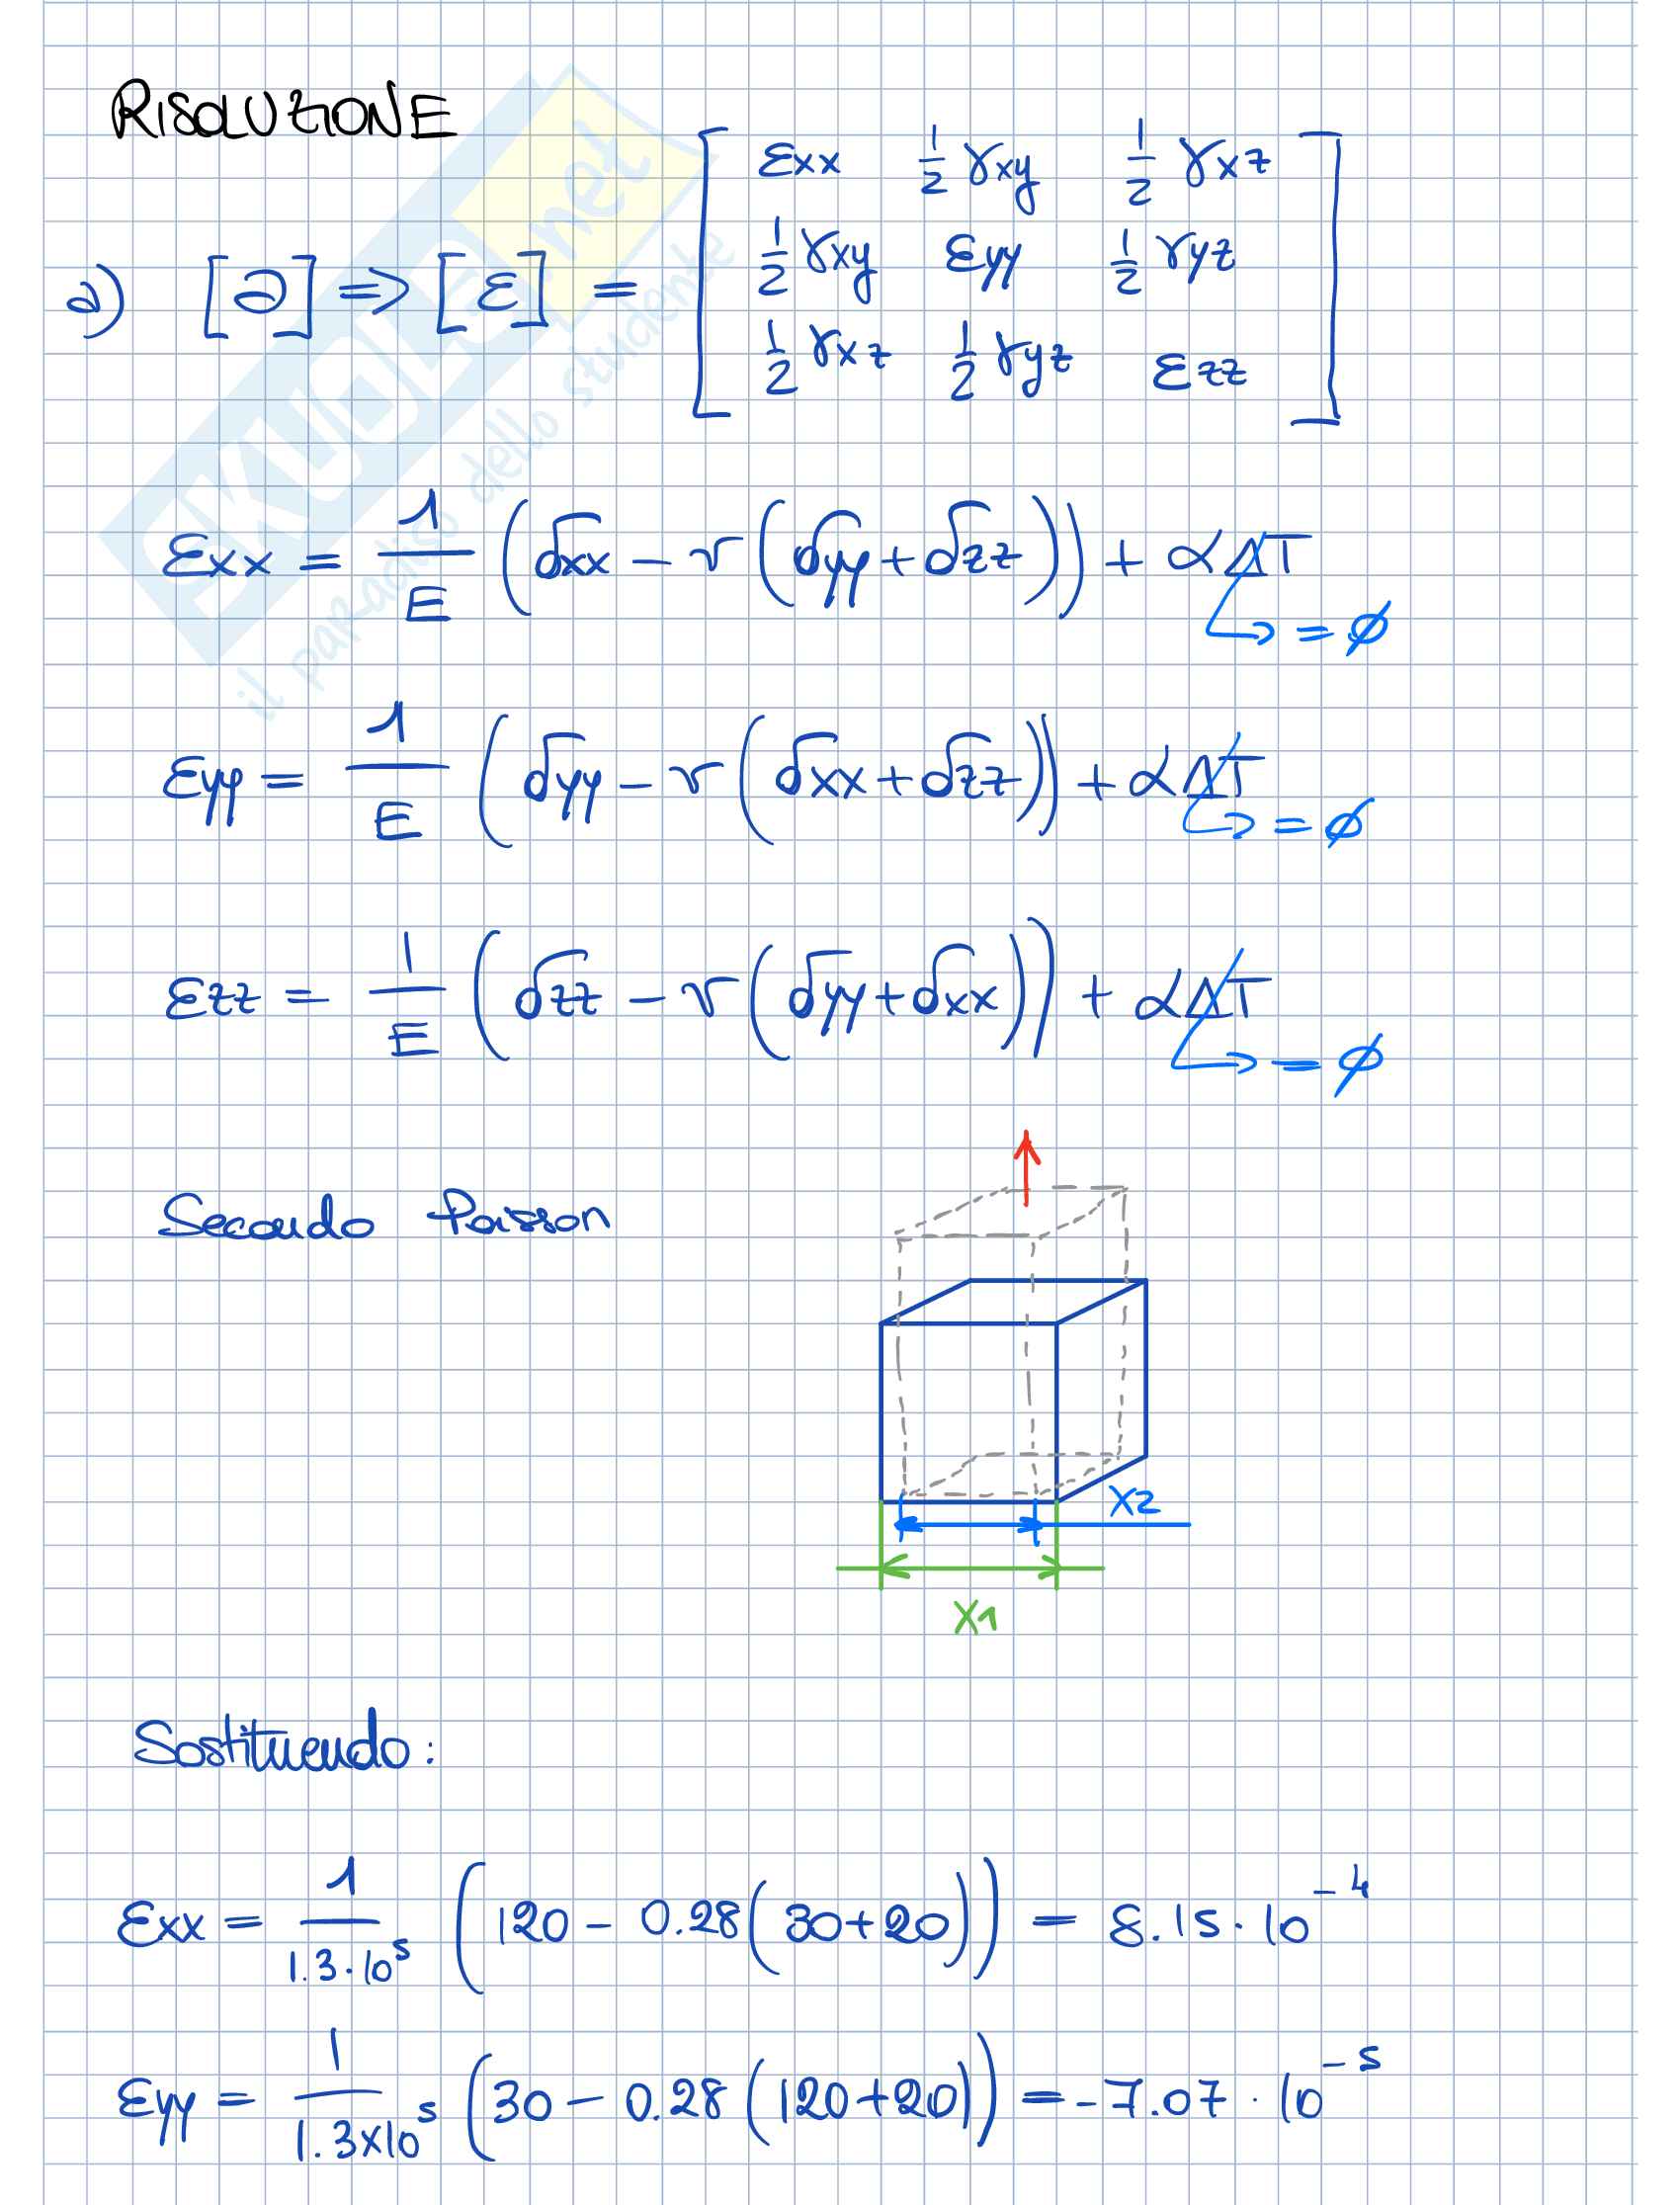 RISOLUZIONE
a) [∂] => [ε] = [ εxx ½ γxy ½ γxz
½ γxy εyy ½ γyz
½ γxz ½ γyz εzz ]
εxx = 1/E (σxx - ν (σyy + σzz)) + αΔT
↳ = ∅
εyy = 1/E (σyy - ν (σxx + σzz)) + αΔT
↳ = ∅
εzz = 1/E (σzz - ν (σyy + σxx)) + αΔT
↳ = ∅
Secondo Poisson
X2
X1
Sostituendo:
εxx = 1/1.3·10^5 (120 - 0.28 (30+20)) = 8.15·10^-4
εyy = 1/1.3×10^5 (30 - 0.28 (120+20)) = -7.07·10^-5
SKUOLA.net
il paradiso dello studente